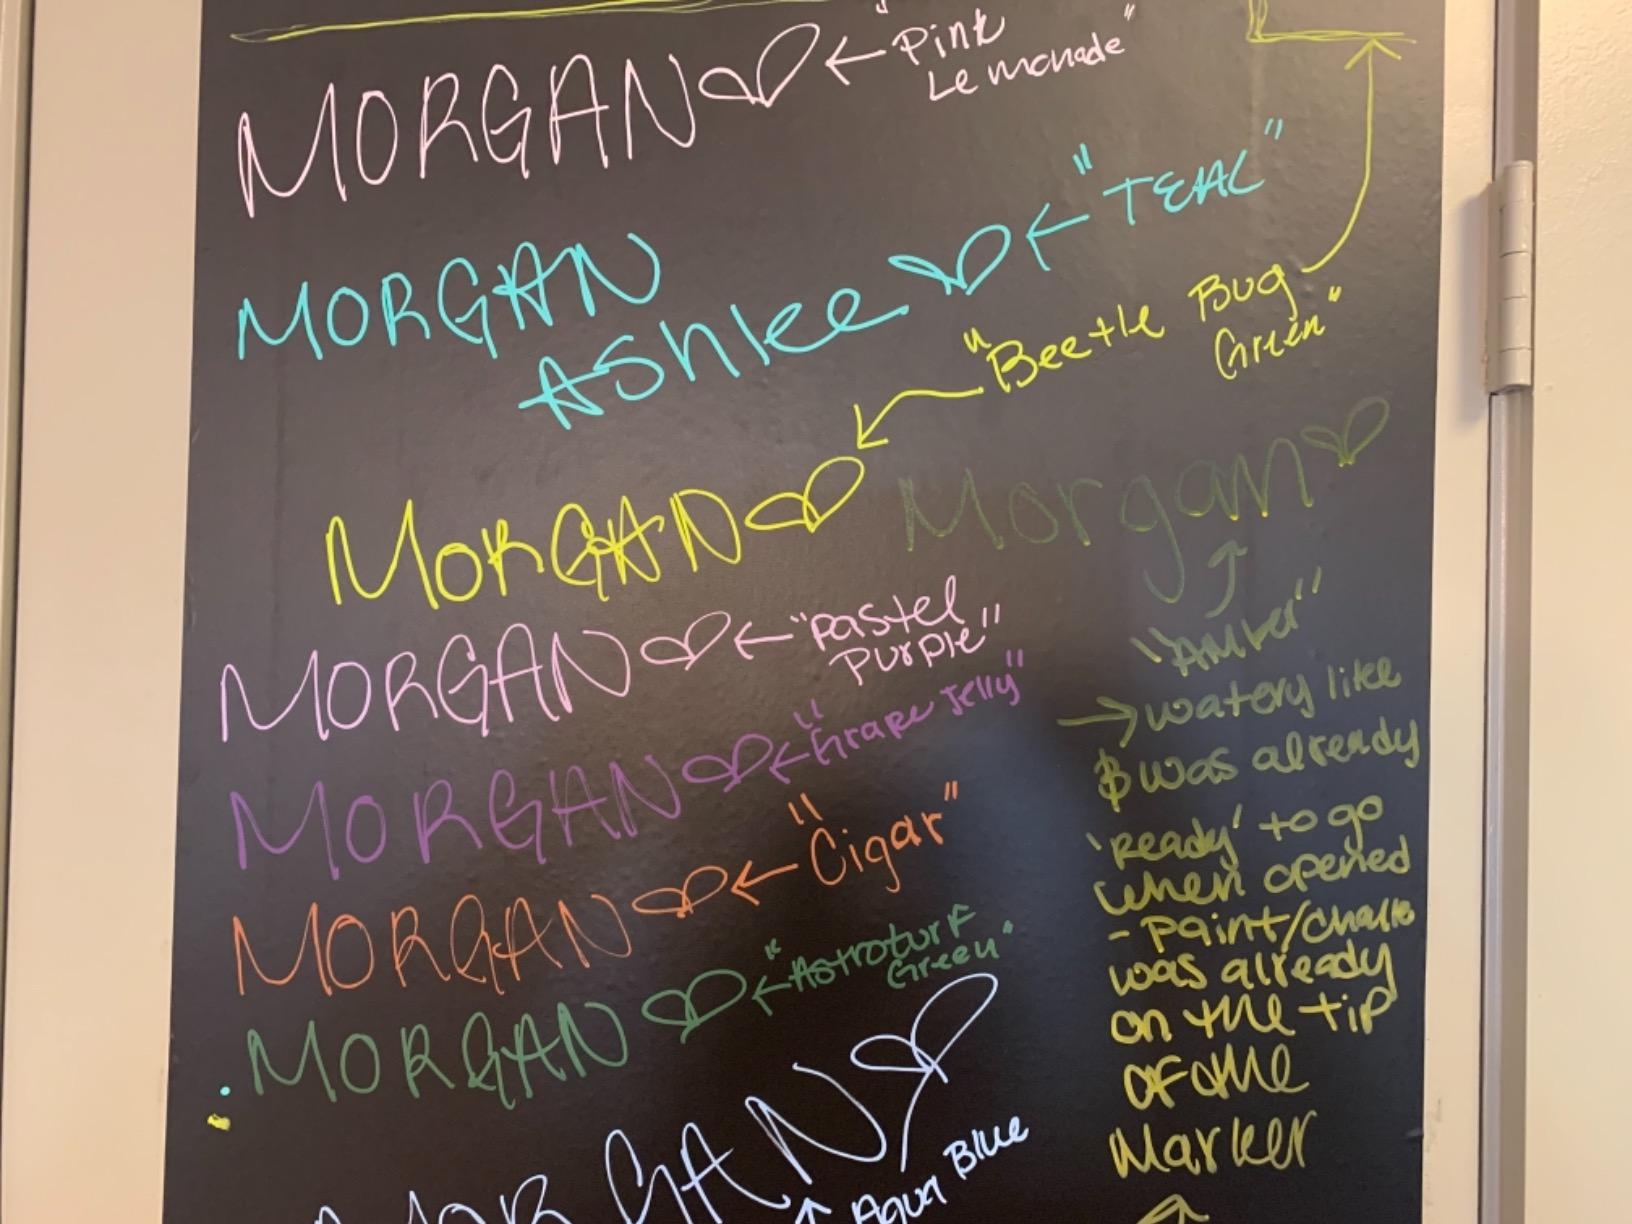 MORGAN ← "Pink
Lemonade"
MORGAN
Ashlee ← "TEAL"
"Beetle Bug
Green"
MORGAN
Morgan
"AMber"
MORGAN ← "Pastel
Purple"
MORGAN ← "Grape Jelly"
MORGAN ← "Cigar"
MORGAN ← "Astroturf
Green"
MORGAN
Aqua Blue
→ watery like
& was already
'ready' to go
when opened
- paint/chalk
was already
on the tip
of the
Marker